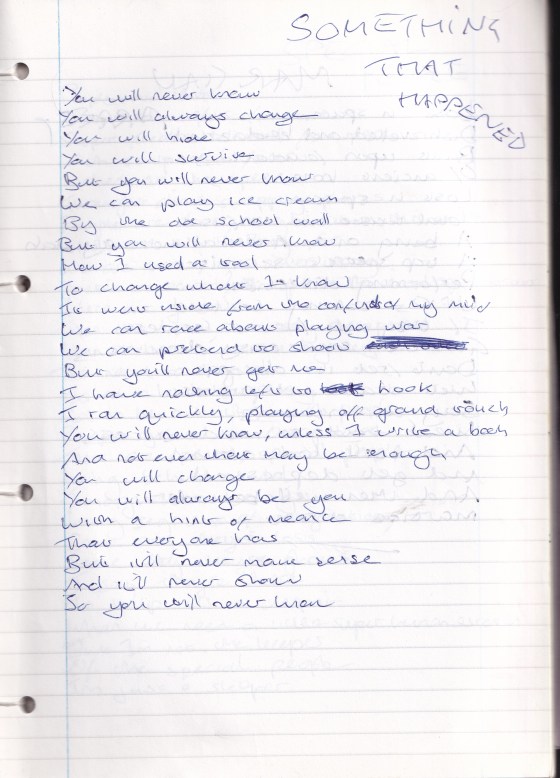 SOMETHING
THAT
HAPPENED
You will never know
You will always change
You will hide
You will survive
But you will never know
We can play ice cream
By the old school wall
But you will never know
How I used a tool
To change what I know
It went inside from the confines of my mind
We can race about playing war
We can pretend to shoot
But you'll never get me
I have nothing left to hook
I ran quickly, playing off grand touch
You will never know, unless I write a book
And not even that may be enough
You will change
You will always be you
With a hint of
That everyone has
But it'll never make sense
And it'll never show
So you will never know